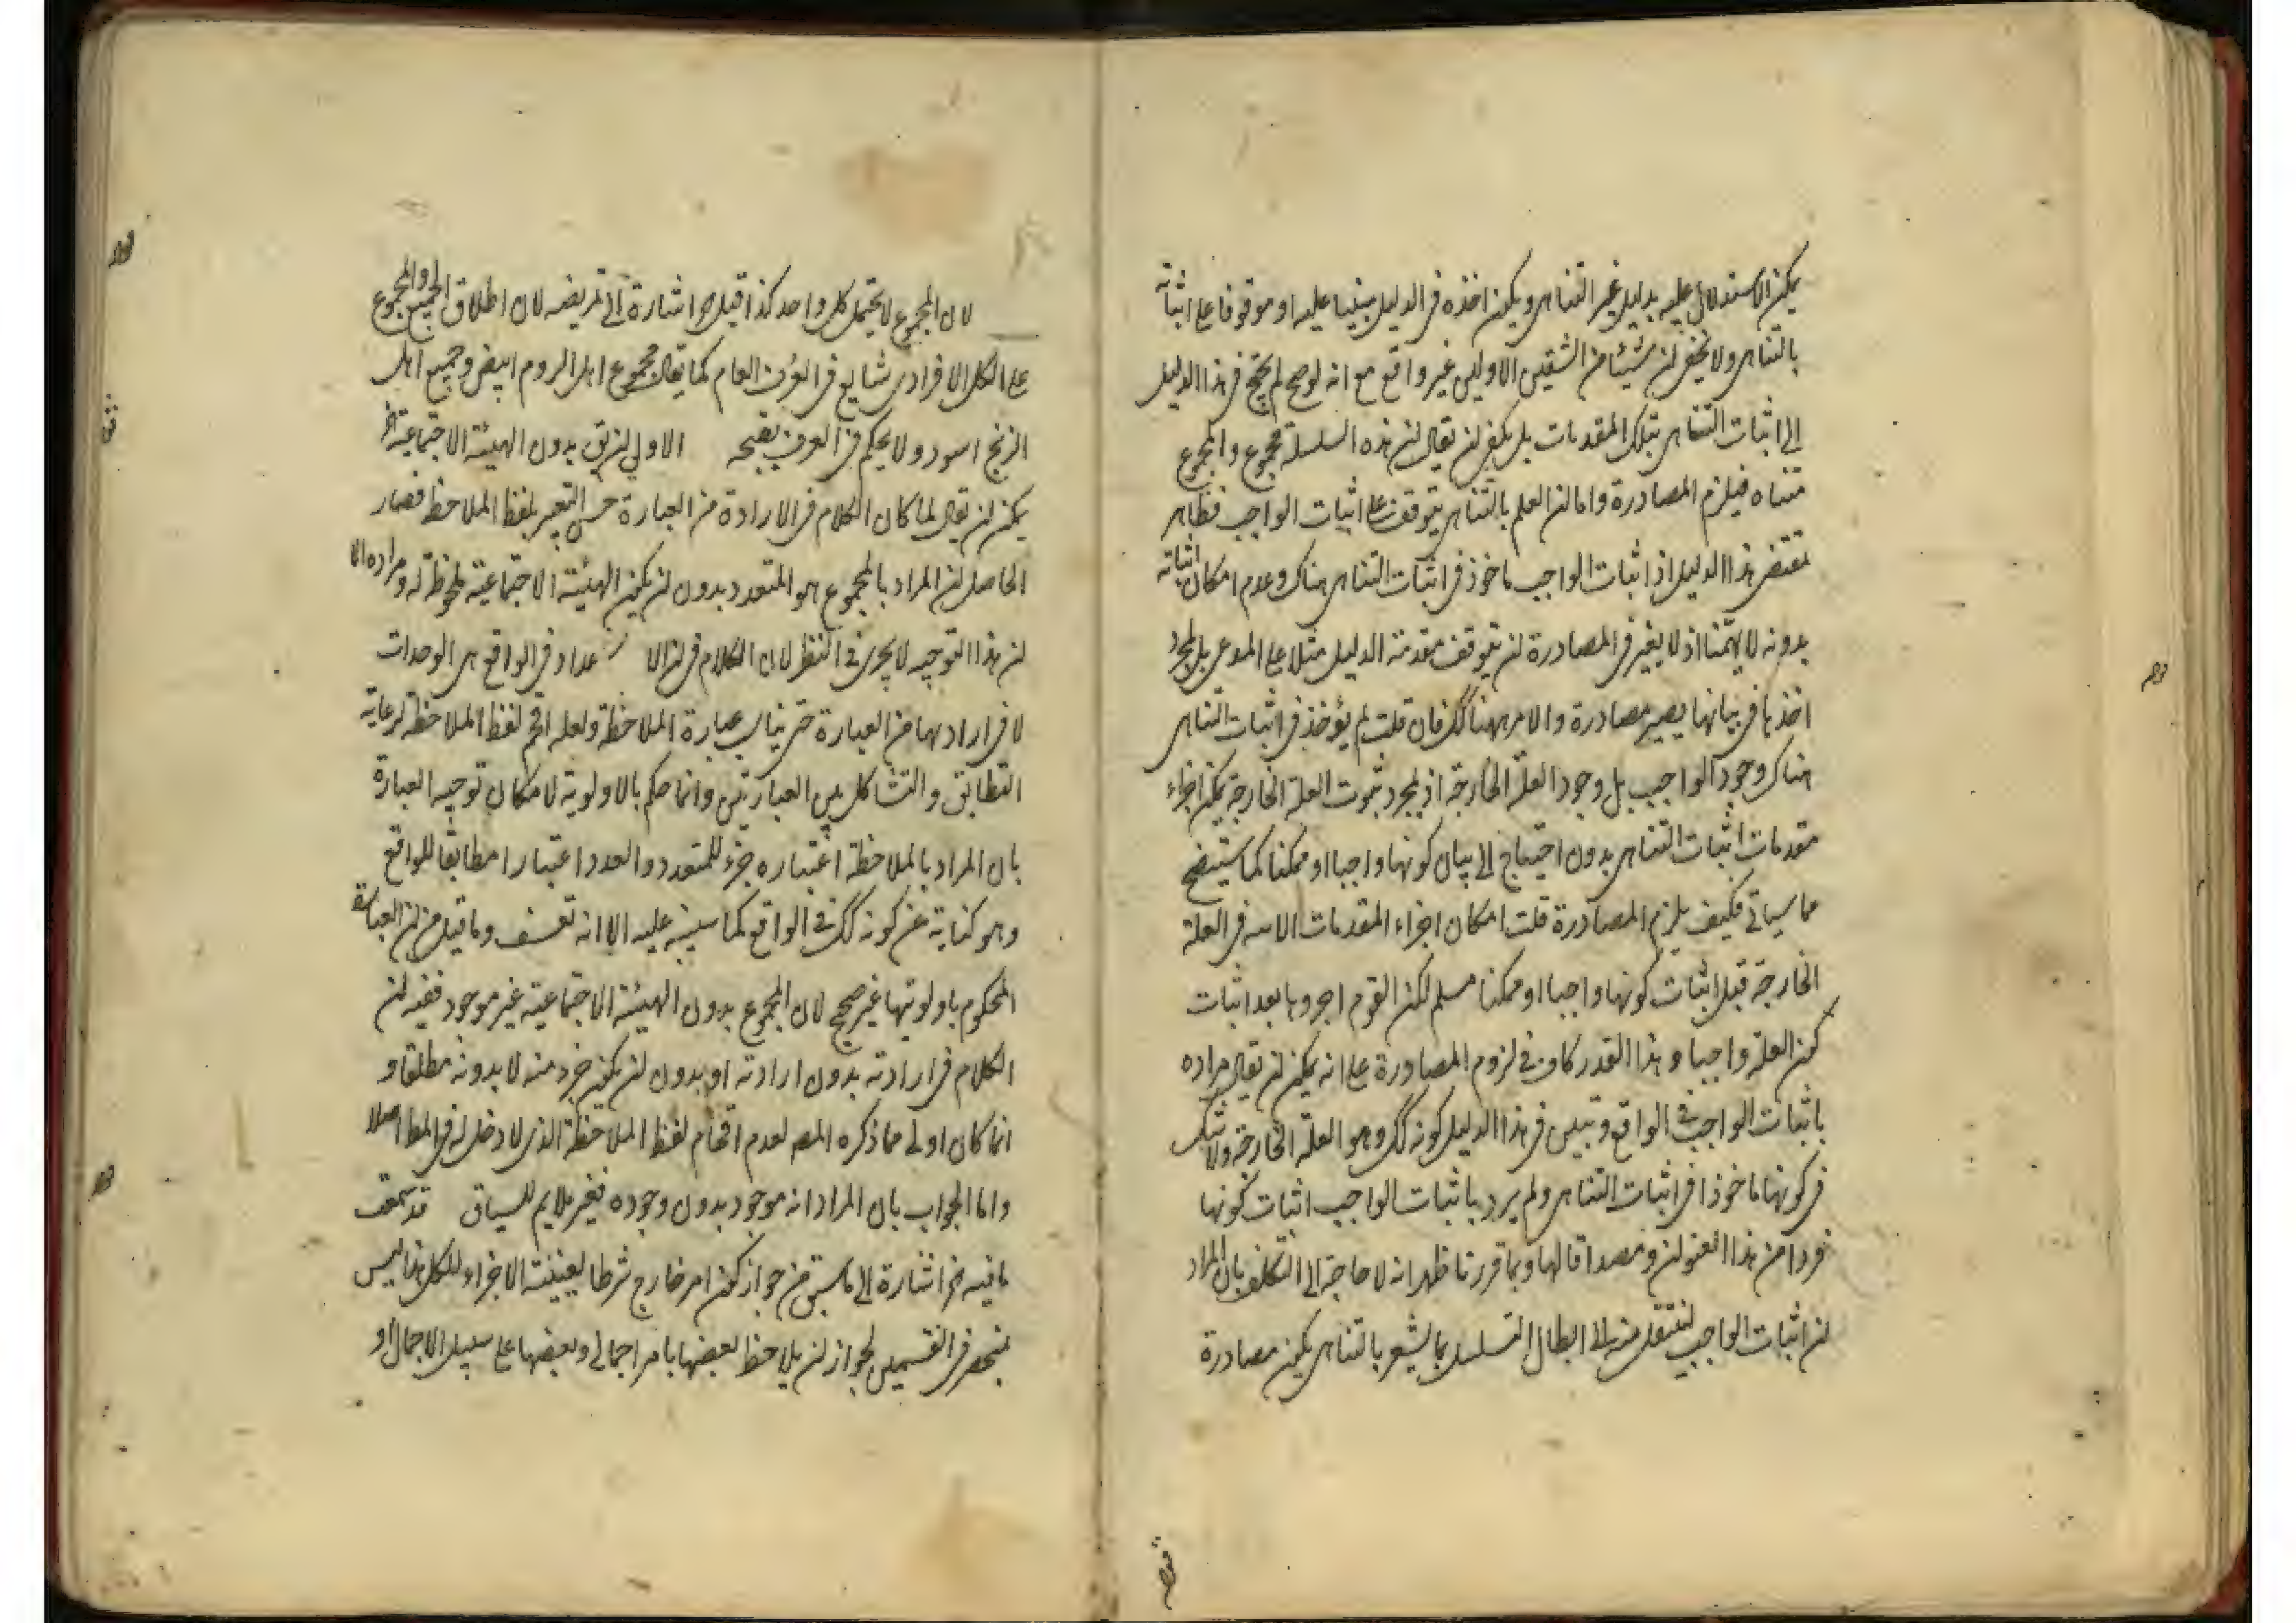 يمكن الاستدلال عليه بدليل غير التناهى ويمكن اخذه فى الدليل مبنيا عليه او موقوفا على اثباته
بالتناهى ولا يخفى ان شيئا من الشقين الاولين غير واقع مع انه لو صح لم يحتج فى هذا الدليل
الى اثبات التناهى بتلك المقدمات بل يكفى ان يقال ان هذه السلسلة مجموع والمجموع
متناه فيلزم المصادرة واما ان العلم بالتناهى يتوقف على اثبات الواجب فظاهر
بمقتضى هذا الدليل اذ اثبات الواجب ماخوذ فى اثبات التناهى هناك وعدم امكان اثباته
بدونه لا يهمنا اذ لا يعتبر فى المصادرة ان يتوقف مقدمة الدليل مثلا على المدعى بل لمجرد
اخذها فى بيانها يصير مصادرة والامر ههنا كك فان قلت لم يؤخذ فى اثبات التناهى
هناك وجود الواجب بل وجود العلة الخارجة اذ بمجرد ثبوت العلة الخارجة يمكن اجراء
مقدمات اثبات التناهى بدون احتياج الى بيان كونها واجبا او ممكنا كما سيتضح
مما سياتى فكيف يلزم المصادرة قلت امكان اجراء المقدمات الاتية فى العلة
الخارجة قبل اثبات كونها واجبا او ممكنا مسلم لكن القوم اجروها بعد اثبات
كون العلة واجبا وهذا القدر كاف فى لزوم المصادرة على انه يمكن ان يقال مراده
باثبات الواجب فى الواقع وتبين فى هذا الدليل كونه كك وهو العلة الخارجة ولا شك
فى كونها ماخوذا فى اثبات التناهى ولم يرد باثبات الواجب اثبات كونها
فردا من هذا العنوان ومصداقا لها وبما قررنا ظهر انه لا حاجة الى التكلف بان المراد
ان اثبات الواجب لننتقل منه الى ابطال التسلسل بما يشعر بالتناهى يكون مصادرة
لان المجموع لا يحتمل كل واحد كذا قيل اشارة الى تمريضه لان اطلاق الجميع والمجموع
على الكل الافرادى شايع فى العرف العام كما يقال مجموع اهل الروم ابيض وجميع اهل
الزنج اسود ولا يحكم فى العرف بقبحه الاولى ان يق بدون الهيئة الاجتماعية
يمكن ان يقال لما كان الكلام فى الارادة من العبارة حسن التعبير بلفظ الملاحظ فصار
الحاصل ان المراد بالمجموع هو المتعدد بدون ان يكون الهيئة الاجتماعية ملحوظة له ومرادة الا
ان هذا التوجيه لا يجرى فى النظر لان الكلام فى ان الا عداد فى الواقع هى الوحدات
لا فى ارادتها من العبارة حتى يناسب عبارة الملاحظة ولعله اقحم لفظ الملاحظة لرعاية
التطابق والتشاكل بين العبارتين وانما حكم بالاولوية لامكان توجيه العبارة
بان المراد بالملاحظة اعتباره جزء للمتعدد والعدد اعتبارا مطابقا للواقع
وهو كناية عن كونه كك فى الواقع كما سينبه عليه الا انه تعسف وما قيل من ان العبارة
المحكوم باولويتها غير صحيح لان المجموع بدون الهيئة الاجتماعية غير موجود ففيه ان
الكلام فى ارادته بدون ارادته او بدون ان يكون جزء منه لا بدونه مطلقا و
انما كان اولى مما ذكره المص لعدم اقحام لفظ الملاحظة الذى لا دخل له فى المط اصلا
واما الجواب بان المراد انه موجود بدون وجوده فغير ملايم للسياق قد سمعت
ما فيه اشارة الى ما سبق من جواز كون امر خارج شرطا لعينية الاجزاء للكل هذا ليس
بمنحصر فى القسمين لجواز ان يلاحظ بعضها بامر اجمالى وبعضها على سبيل الاجمال او